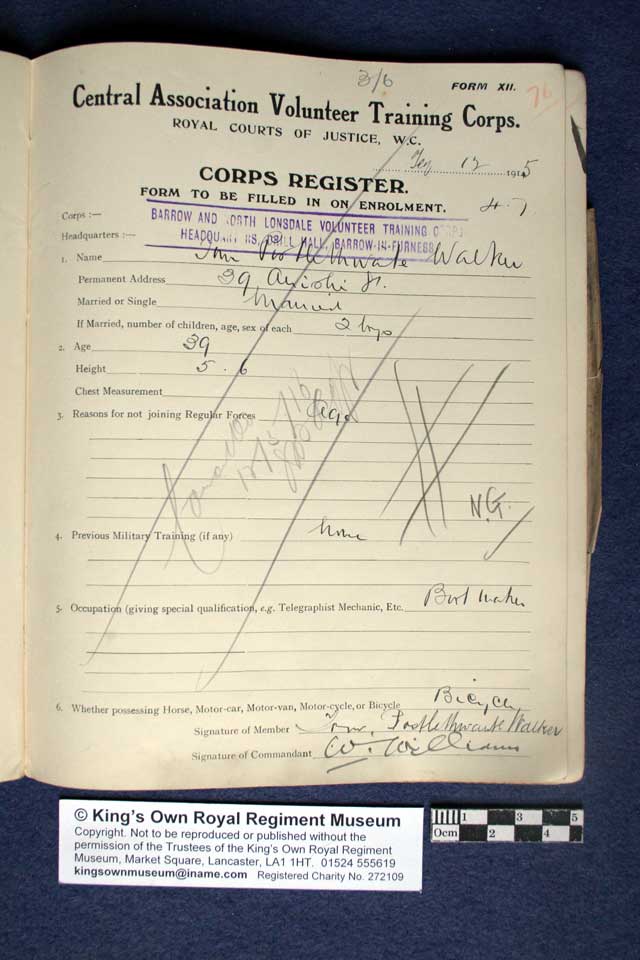 3/6
FORM XII.
76
Central Association Volunteer Training Corps.
ROYAL COURTS OF JUSTICE, W.C.
12 1915
CORPS REGISTER.
FORM TO BE FILLED IN ON ENROLMENT.
4.7
Corps :—
BARROW AND NORTH LONSDALE VOLUNTEER TRAINING CORPS
Headquarters :—
HEADQUARTERS, DRILL HALL, BARROW-IN-FURNESS
1. Name Tom Postlethwaite Walker
Permanent Address 39 St.
Married or Single Married
If Married, number of children, age, sex of each 2 boys
2. Age 39
Height 5.6
Chest Measurement
3. Reasons for not joining Regular Forces Age
N.G.
4. Previous Military Training (if any) None
5. Occupation (giving special qualification, e.g. Telegraphist Mechanic, Etc. Boot Maker
6. Whether possessing Horse, Motor-car, Motor-van, Motor-cycle, or Bicycle Bicycle
Signature of Member Tom Postlethwaite Walker
Signature of Commandant W. Williams
© King's Own Royal Regiment Museum
Copyright. Not to be reproduced or published without the
permission of the Trustees of the King's Own Royal Regiment
Museum, Market Square, Lancaster, LA1 1HT. 01524 555619
kingsownmuseum@iname.com Registered Charity No. 272109
1 3 5
0cm 2 4